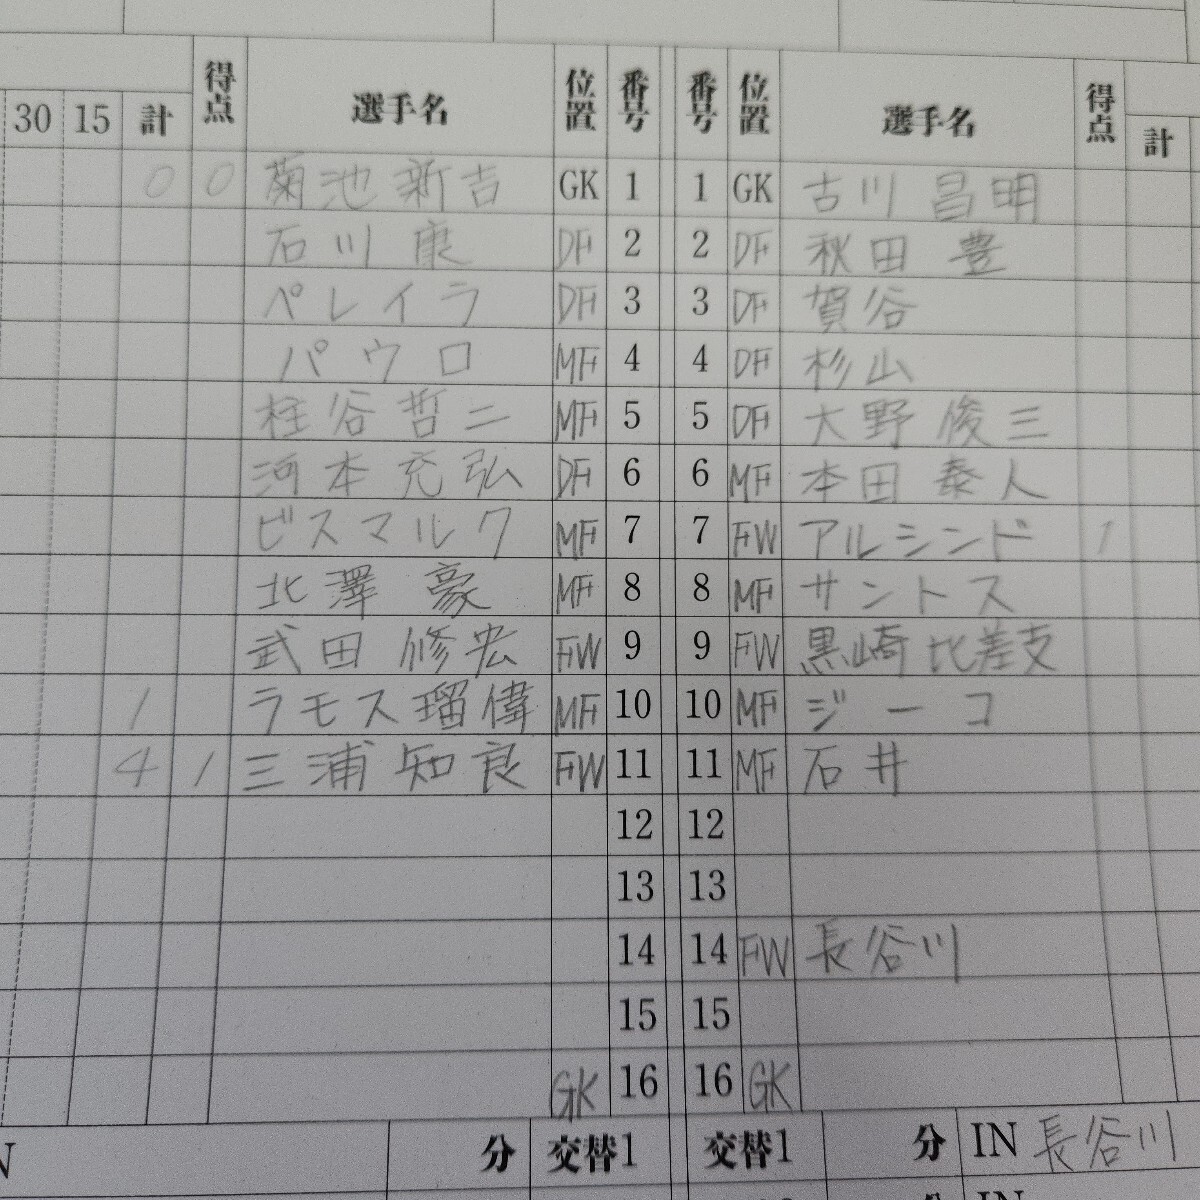 30 15 計 得点 選手名 位置 番号 番号 位置 選手名 得点 計
0 0 菊池新吉 GK 1 1 GK 古川 昌明
石川 康 DF 2 2 DF 秋田 豊
ペレイラ DF 3 3 DF 賀谷
パウロ MF 4 4 DF 杉山
柱谷哲二 MF 5 5 DF 大野俊三
河本充弘 DF 6 6 MF 本田泰人
ビスマルク MF 7 7 FW アルシンド 1
北澤 豪 MF 8 8 MF サントス
武田修宏 FW 9 9 FW 黒崎比差支
1 ラモス瑠偉 MF 10 10 MF ジーコ
4 1 三浦知良 FW 11 11 MF 石井
12 12
13 13
14 14 FW 長谷川
15 15
GK 16 16 GK
分 交替1 交替1 分 IN 長谷川